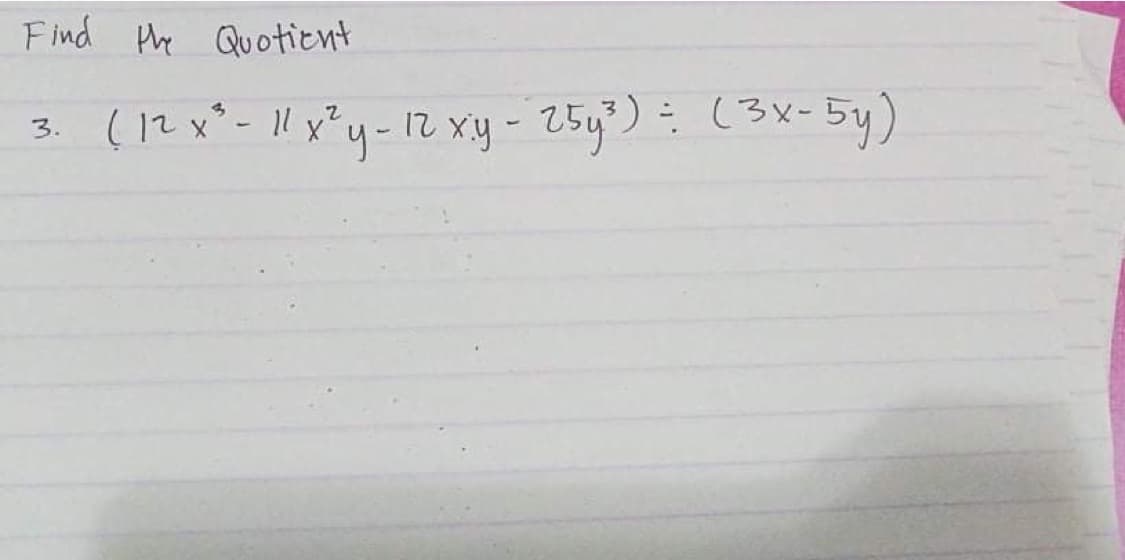 Find the Quotient
3. (12x³ - 11x²y - 12xy - 25y³) ÷ (3x - 5y)